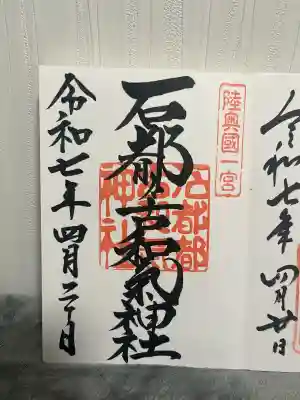 令和七年 四月廿日
陸奥國一宮
石都々古和氣神社
石都都
神社
令和七年四月二十日